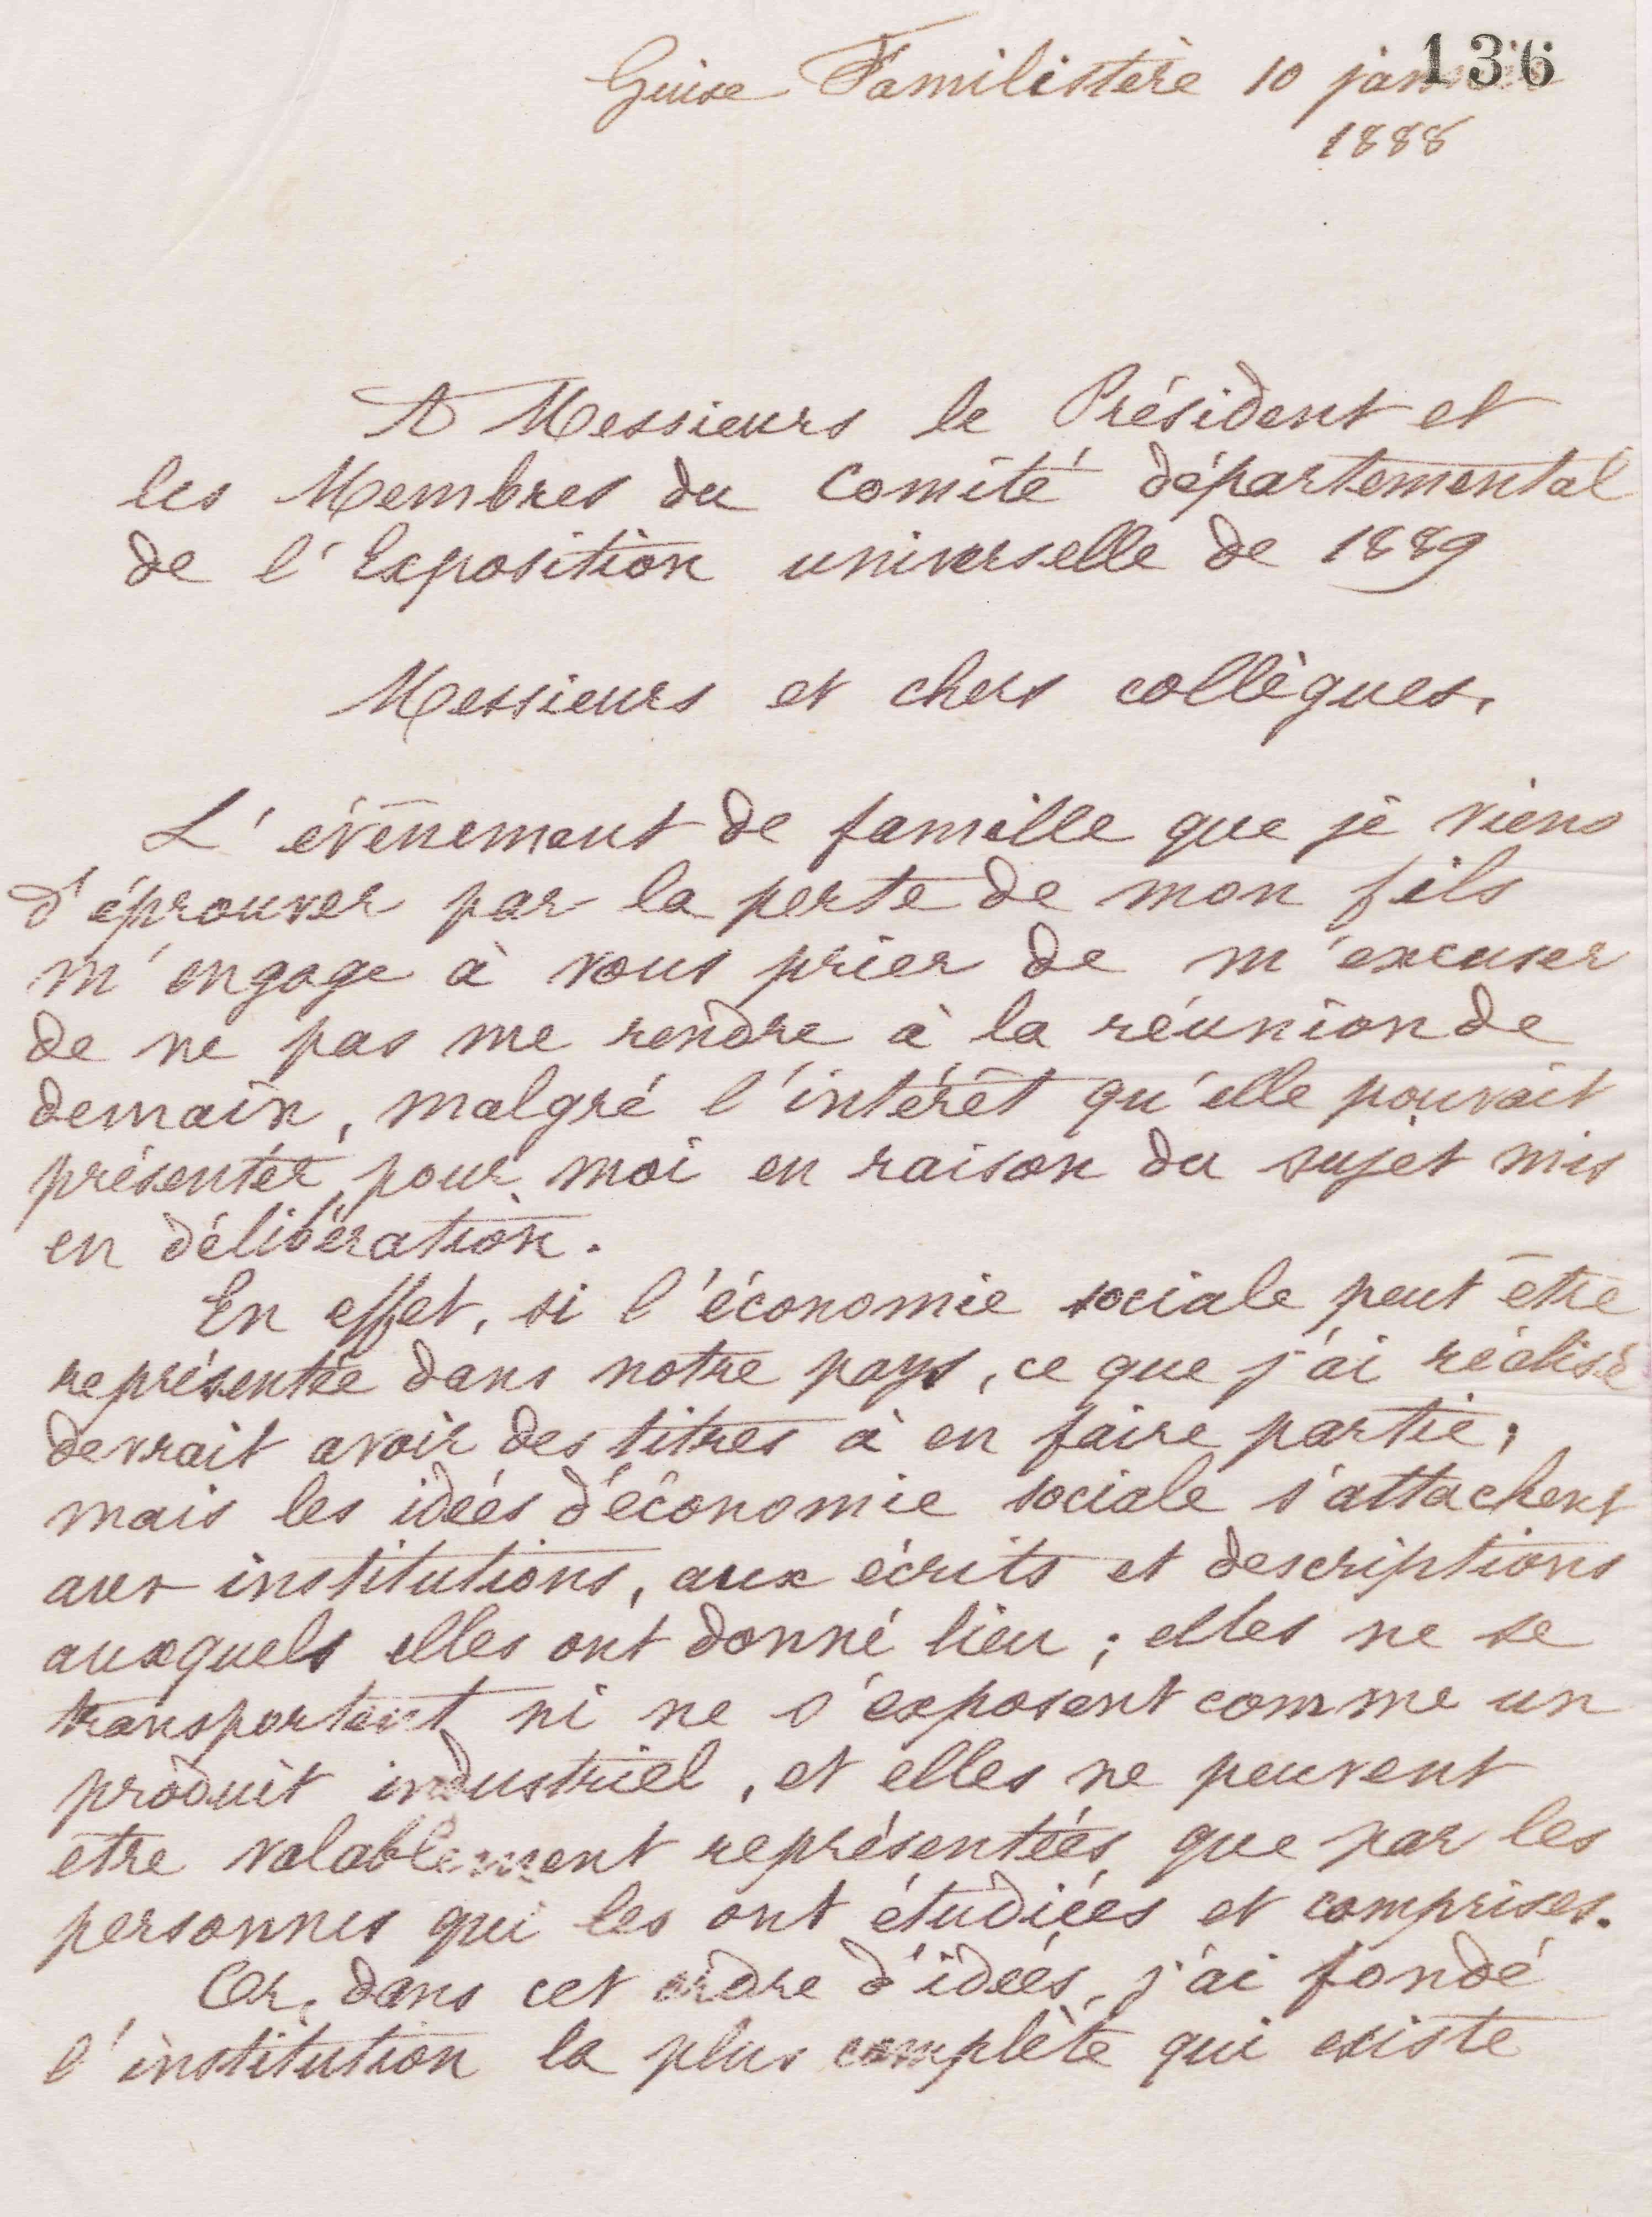 Guise Familistère 10 janvier
136
1888
A Messieurs le Président et
les Membres du Comité départemental
de l'Exposition universelle de 1889
Messieurs et chers collègues,
L'évènement de famille que je viens
d'éprouver par la perte de mon fils
m'engage à vous prier de m'excuser
de ne pas me rendre à la réunion de
demain, malgré l'intérêt qu'elle pouvait
présenter pour moi en raison du sujet mis
en délibération.
En effet, si l'économie sociale peut être
représentée dans notre pays, ce que j'ai réalisé
devrait avoir des titres à en faire partie;
mais les idées d'économie sociale s'attachent
aux institutions, aux écrits et descriptions
auxquels elles ont donné lieu; elles ne se
transportent ni ne s'exposent comme un
produit industriel, et elles ne peuvent
etre valablement représentées que par les
personnes qui les ont étudiées et comprises.
Or, dans cet ordre d'idées, j'ai fondé
l'institution la plus complète qui existe